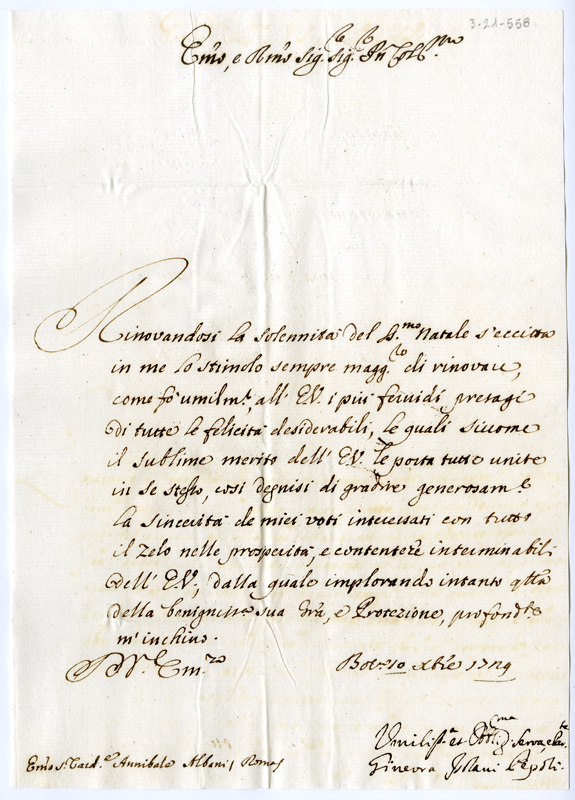 3-21-558
Em̃o, e Rm̃o Sig.re Sig.re Prõn Col.mo
Rinovandosi la solennità del S.mo Natale s'eccitta
in me lo stimolo sempre magg.re di rinovare,
come fò umilm.e, all' E.V. i più feruidi presagi
di tutte le felicità desiderabili, le quali siccome
il sublime merito dell' E.V. le porta tutte unite
in se stesso, così degnisi di gradire generosam.e
la sincerità de miei voti interessati con tutto
il zelo nelle prosperità, e contentezze interminabili
dell' E.V., dalla quale implorando intanto qlla
della benigniss.a sua Gra, e Protezione, profond.e
m' inchino.
D. V.ra Em.za Bol.a 10 Xbre 1729
Umiliss.a et Obl.ma Serva
Em̃o S.r Card.e Annibale Albani / Roma /
Ginevra Isolani Pepoli